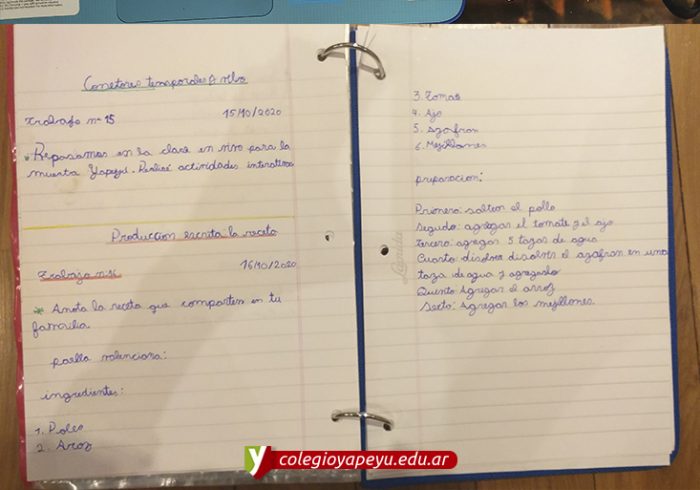 Conetores temporales y vbs
Trabajo nº 15 15/10/2020
Repasamos en la clase en vivo para la
muestra Yapeyú. Realicé actividades interativas
Produccion escrita: la receta
Trabajo n:16 16/10/2020
* Anota la receta que comparten en tu
familia.
paella valenciana:
ingredientes:
1. Pollo
2. Aroz
3. Tomate
4. Ajo
5. Azafran
6. Mejillones
preparacion:
Primero: saltear el pollo
Segundo: agregar el tomate y el ajo
tercero: agregar 5 tazas de agua
Cuarto: disolver el azafran en una
taza de agua y agregarlo
Quinto: Agregar el arroz
Sexto: Agregar los mejillones.
colegioyapeyu.edu.ar